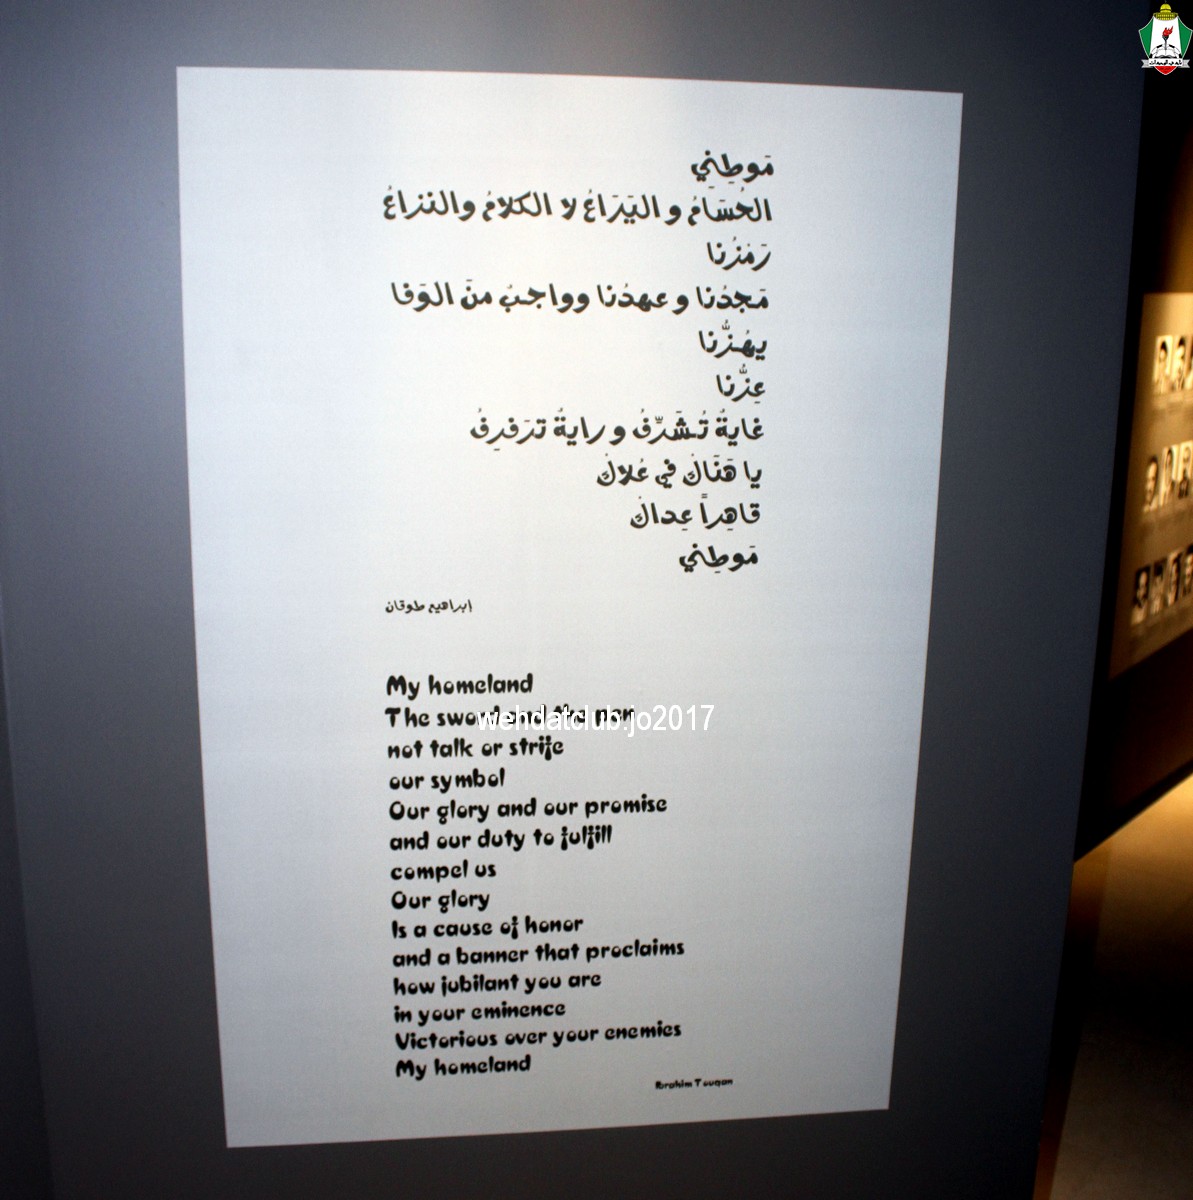 مَوطِنِي
الحُسَامُ و اليَرَاعُ لا الكلامُ والنزاعُ
رَمزُنا
مَجدُنا و عهدُنا وواجبٌ منَ الوَفا
يهُزُّنا
عِزُّنا
غايةٌ تُشَرِّفُ و رايةٌ ترَفرِفُ
يا هَنَاكَ في عُلاكَ
قاهِراً عِداكَ
مَوطِني
إبراهيم طوقان
My homeland
The sword and the pen
not talk or strife
our symbol
Our glory and our promise
and our duty to fulfill
compel us
Our glory
Is a cause of honor
and a banner that proclaims
how jubilant you are
in your eminence
Victorious over your enemies
My homeland
Ibrahim Touqan
wehdatclub.jo2017